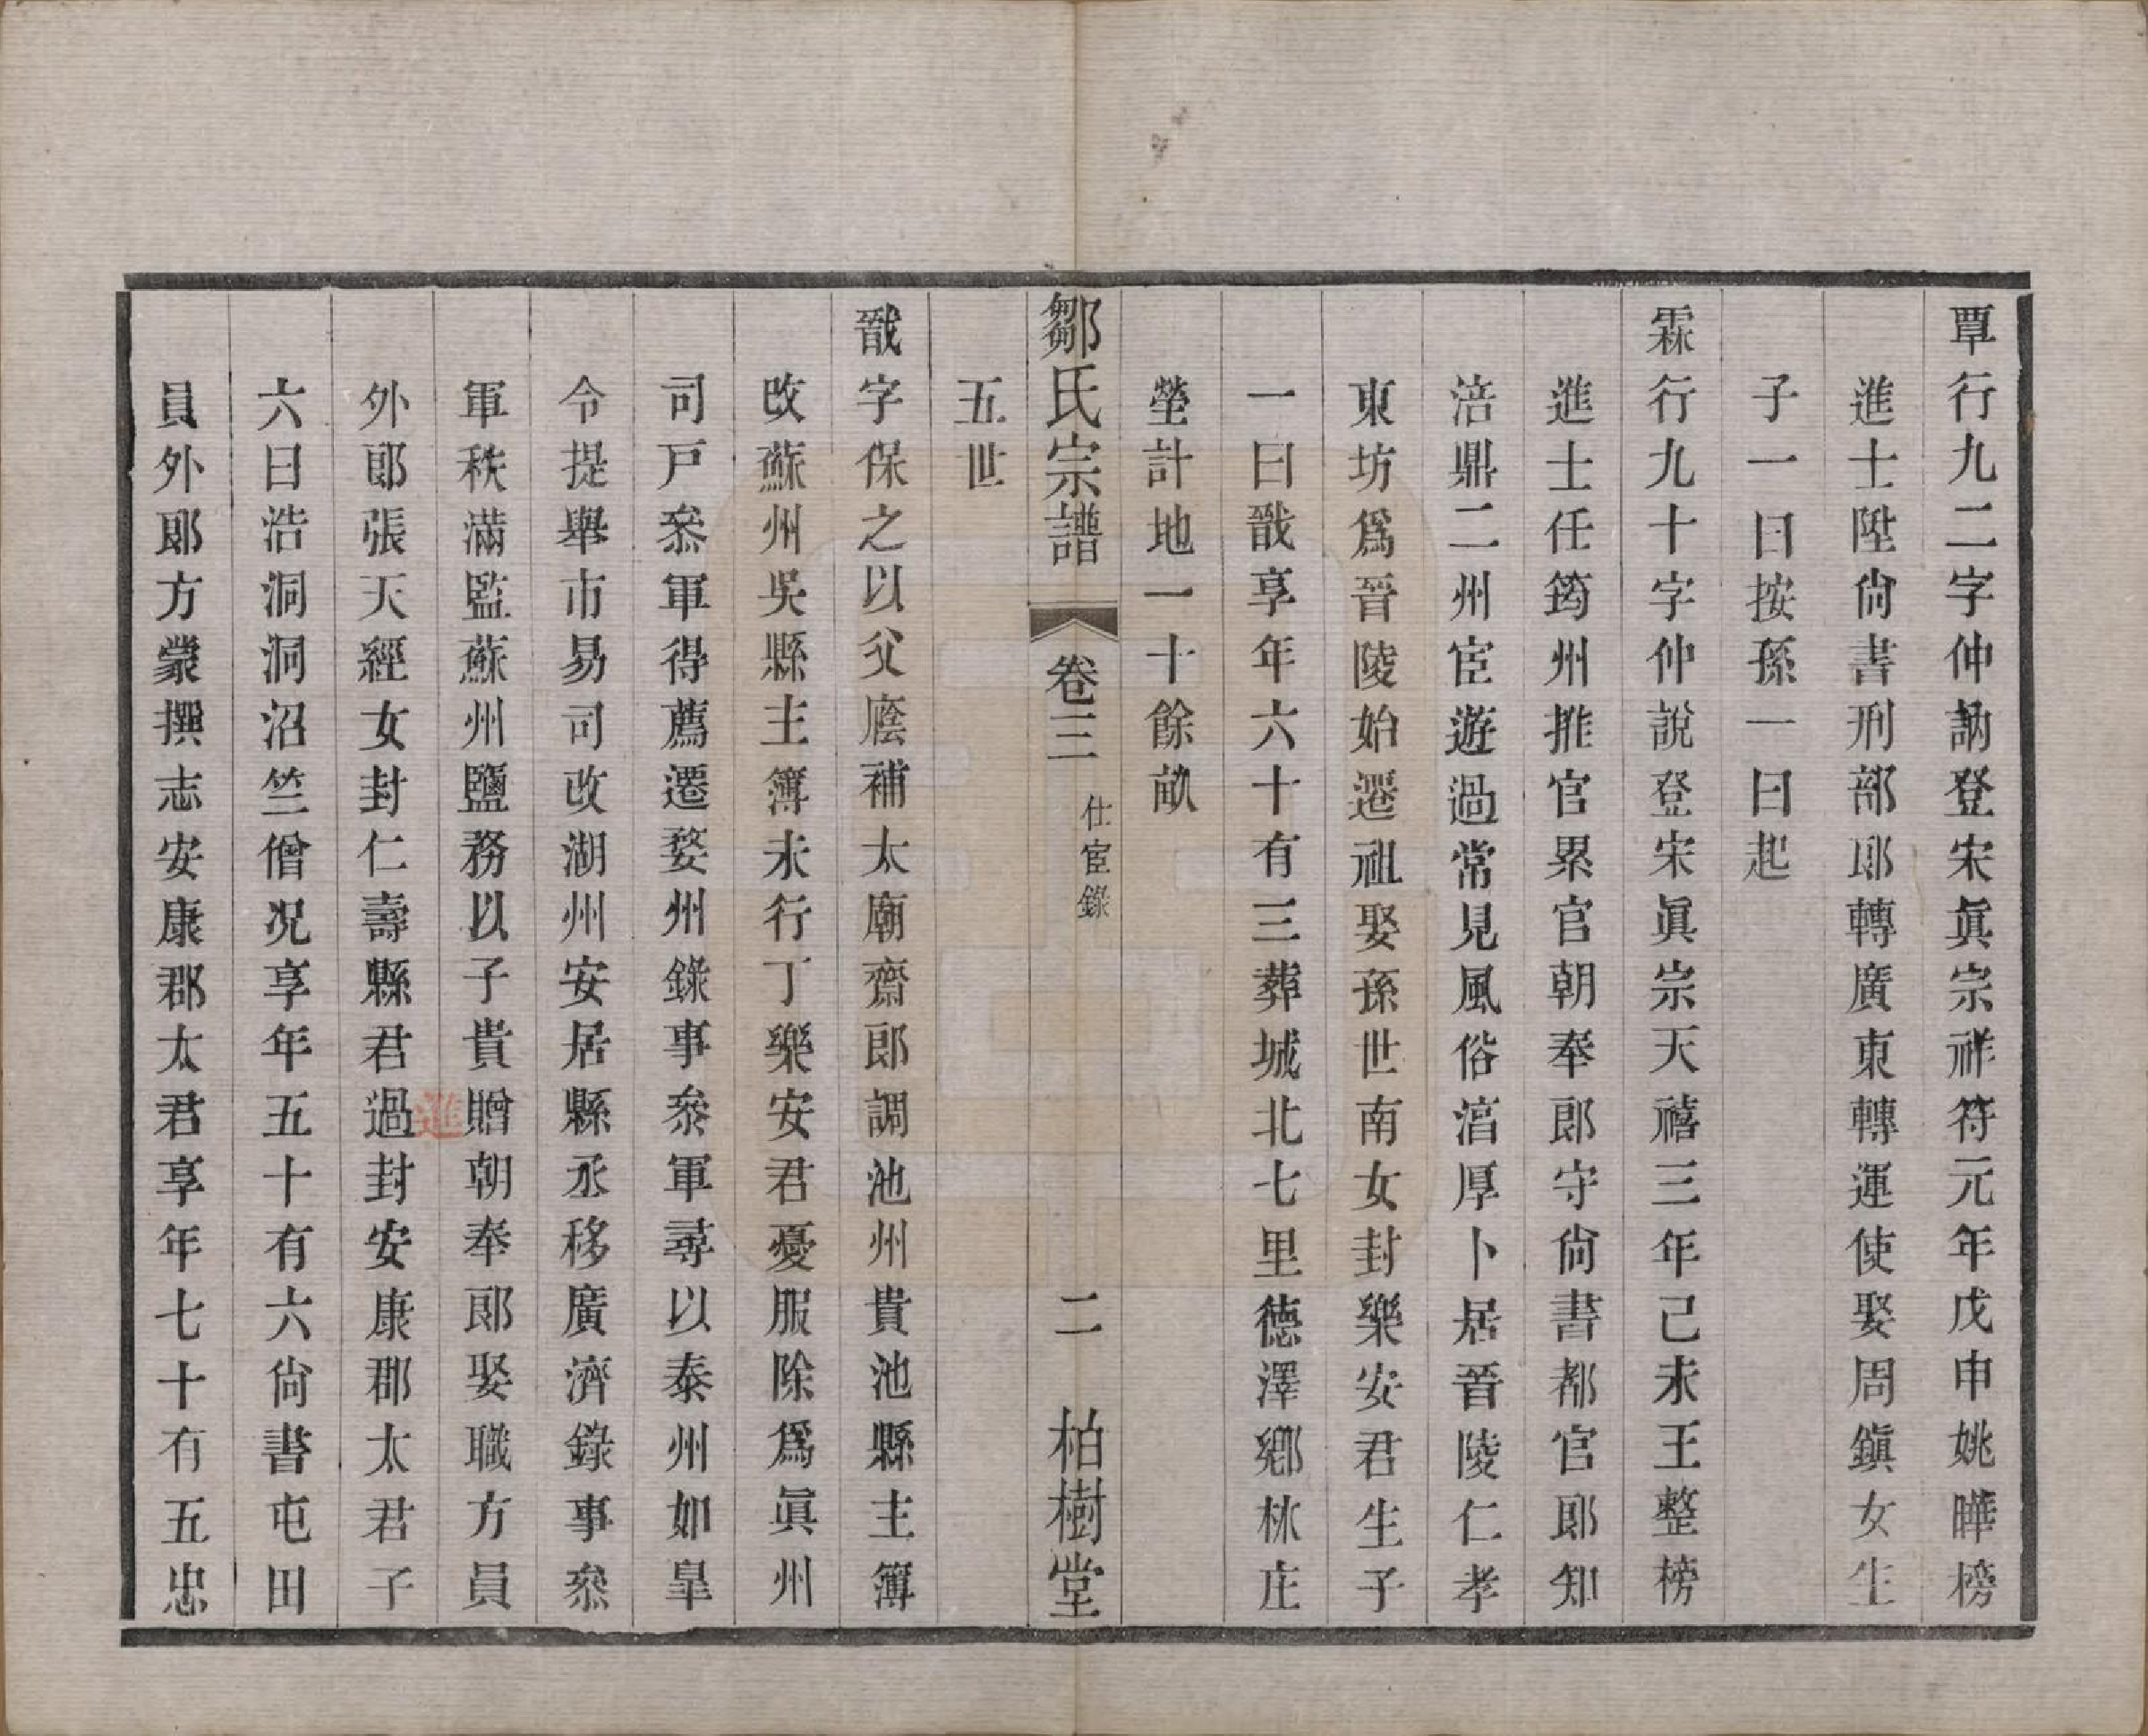 覃行九二字仲訥登宋眞宗祥符元年戊申姚曄榜
進士陞尙書刑部郎轉廣東轉運使娶周鎭女生
子一曰按孫一曰起
霖行九十字仲說登宋眞宗天禧三年己未王整榜
進士任筠州推官累官朝奉郎守尙書都官郎知
涪鼎二州宦遊過常見風俗湻厚卜居晉陵仁孝
東坊爲晉陵始遷祖娶孫世南女封樂安君生子
一曰戩享年六十有三葬城北七里德澤鄉林庄
塋計地一十餘畝
鄒氏宗譜 卷三 仕宦錄 二 柏樹堂
五世
戩字保之以父廕補太廟齋郎調池州貴池縣主簿
改蘇州吳縣主簿未行丁樂安君憂服除爲眞州
司戸叅軍得薦遷婺州錄事叅軍尋以泰州如皐
令提舉市易司改湖州安居縣丞移廣濟錄事叅
軍秩滿監蘇州鹽務以子貴贈朝奉郎娶職方員
外郎張天經女封仁壽縣君過封安康郡太君子
進
六曰浩洞洞沼竺僧况享年五十有六尙書屯田
員外郎方蒙撰志安康郡太君享年七十有五忠